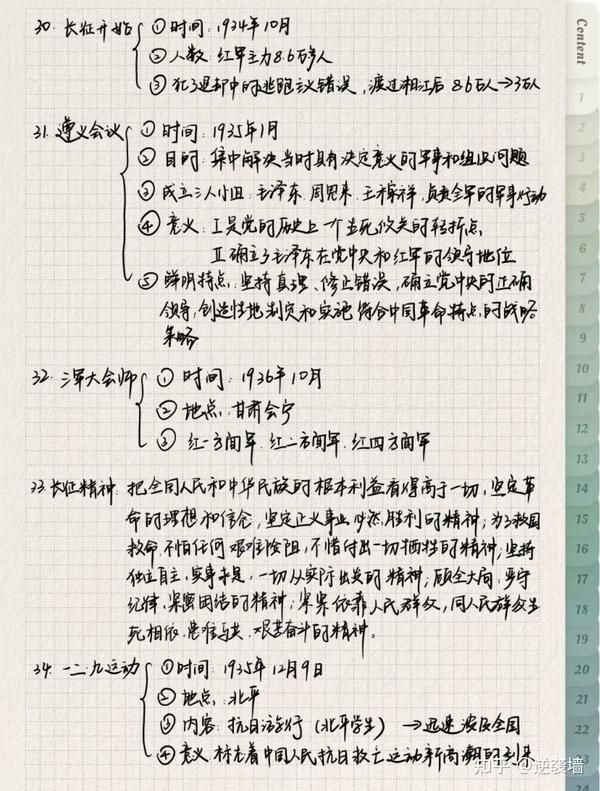 30. 长征开始 ① 时间：1934年10月
② 人数：红军主力8.6万多人
③ 犯了退却中的逃跑主义错误，渡过湘江后 8.6万人→3万人
31. 遵义会议 ① 时间：1935年1月
② 目的：集中解决当时具有决定意义的军事和组织问题
③ 成立三人小组：毛泽东、周恩来、王稼祥，负责全军的军事行动
④ 意义：I是党的历史上一个生死攸关的转折点，
II确立了毛泽东在党中央和红军的领导地位
⑤ 鲜明特点：坚持真理、修正错误，确立党中央的正确
领导，创造性地制定和实施符合中国革命特点的战略
策略
32. 三军大会师 ① 时间：1936年10月
② 地点：甘肃会宁
③ 红一方面军、红二方面军、红四方面军
33. 长征精神：把全国人民和中华民族的根本利益看得高于一切，坚定革
命的理想和信念，坚定正义事业必然胜利的精神；为了救国
救命，不怕任何艰难险阻，不惜付出一切牺牲的精神；坚持
独立自主，实事求是，一切从实际出发的精神；顾全大局，严守
纪律，紧密团结的精神；紧紧依靠人民群众，同人民群众生
死相依、患难与共、艰苦奋斗的精神。
34. 一二·九运动 ① 时间：1935年12月9日
② 地点：北平
③ 内容：抗日游行（北平学生）→迅速波及全国
④ 意义：标志着中国人民抗日救亡运动新高潮的到来
Content
1
2
3
4
5
6
7
8
9
10
11
12
13
14
15
16
17
18
19
20
21
22
23
24
知乎 @逆袭墙